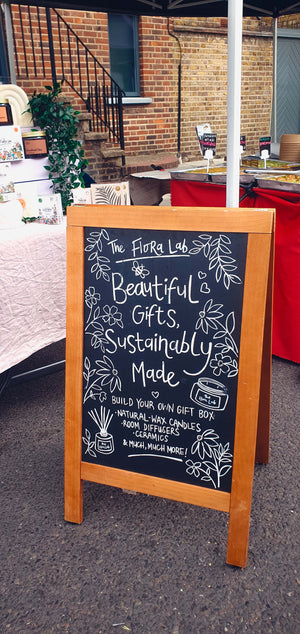 The Flora Lab
Beautiful
Gifts,
Sustainably
Made
BUILD YOUR OWN GIFT BOX
·NATURAL·WAX CANDLES
·ROOM DIFFUSERS
·CERAMICS
& MUCH, MUCH MORE!